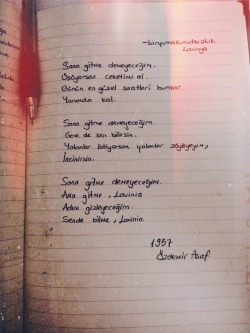 -biryumakmutsuzluk
Lavinya
Sana gitme demeyeceğim.
Üşüyorsun ceketimi al.
Günün en güzel saatleri bunlar.
Yanımda kal.
Sana gitme demeyeceğim.
Gene de sen bilirsin.
Yalanlar istiyorsan yalanlar söyleyeyim,
İncinirsin.
Sana gitme demeyeceğim.
Ama gitme, Lavinia
Adını gizleyeceğim.
Sende bilme, Lavinia.
1957
Özdemir Asaf